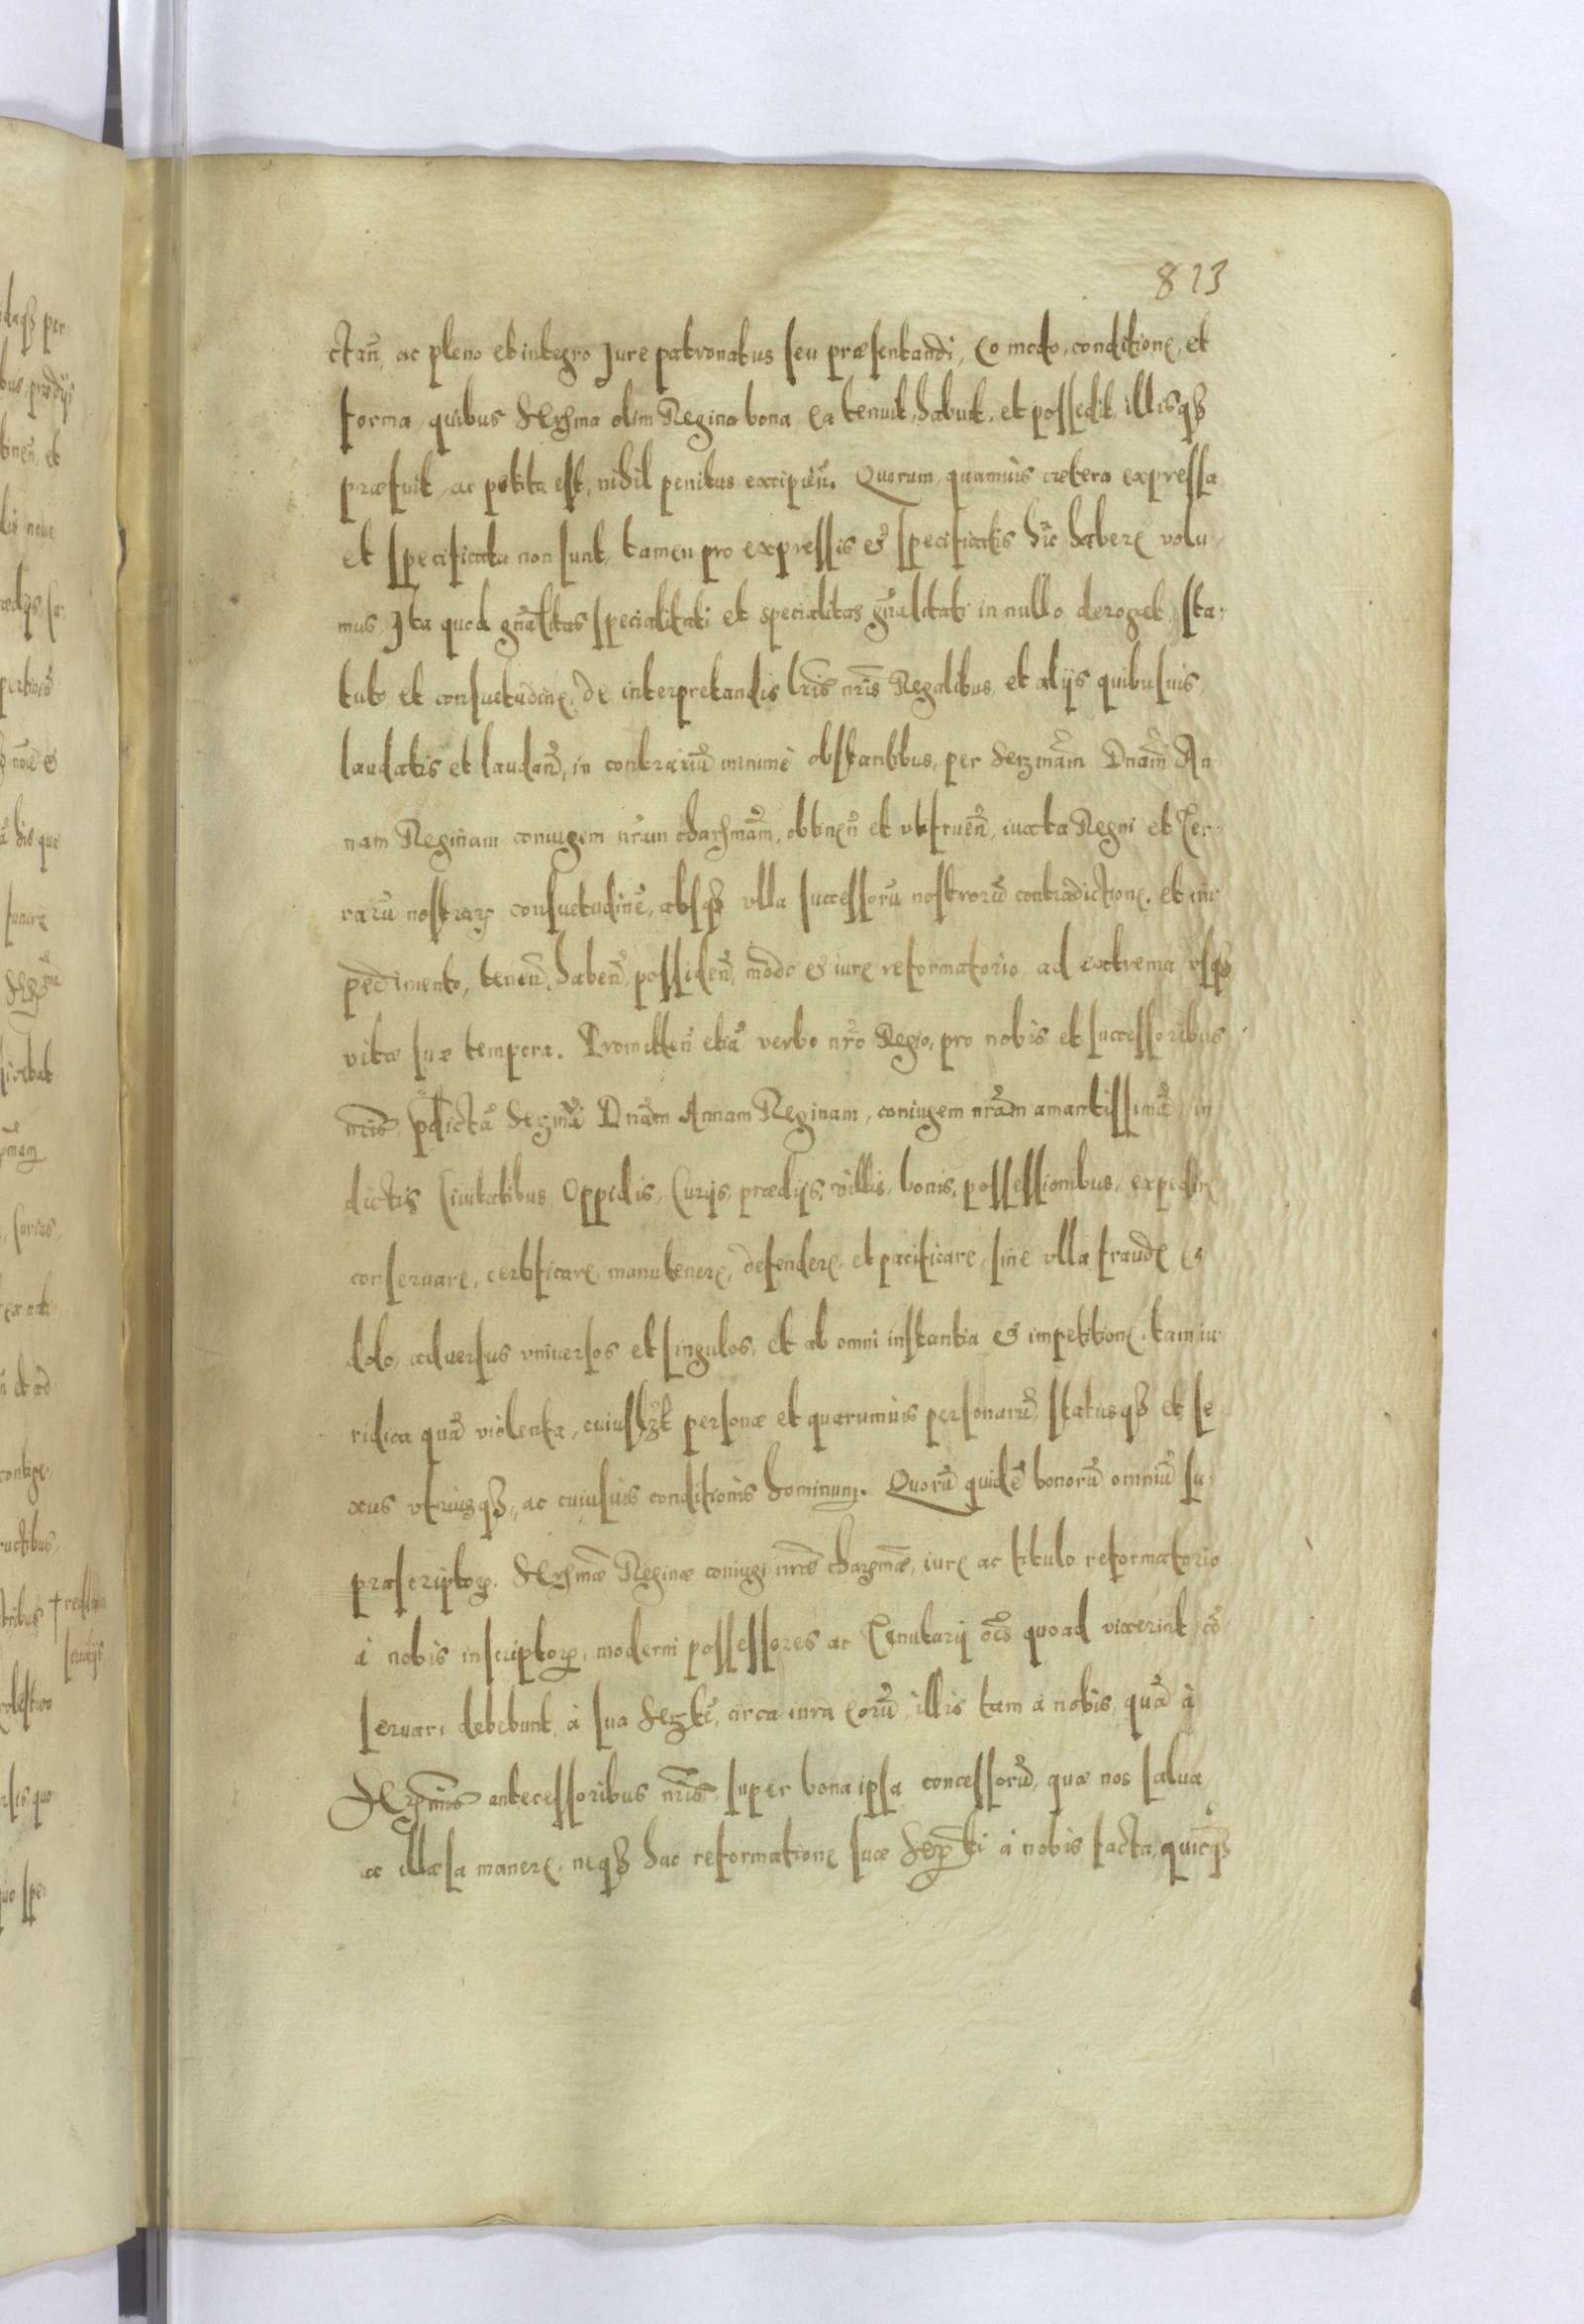 813
ctañ, ac pleno et integro Jure patronatus seu præsentandi, Eo modo, conditione, et
forma quibus Serma olim Regina bona Ea tenuit, habuit, et possedit, illisqꝫ
præfuit, ac potita est, nihil penitus excipieñ. Quorum quamuis cætera expressa
et specificata non sunt, tamen pro expressis & specificatis hic habere volu,
mus, Ita quod gñalitas specialitati et specialitas gñalitati in nullo deroget, sta,
tuto et consuetudine, de interpretandis lris nris Regalibus, et alijs quibusuis
laudatis et laudañ, in contrariũ minimè obstantibus, per Sermam Dnam An
nam Reginam coniugem nram charmam, obtineñ et vtifrueñ, iuxta Regni et Ter,
rarũ nostrarꝝ consuetudinẽ, absqꝫ vlla successorũ nostrorũ contradictione, et im
pedimento, teneñ, habeñ, possideñ, modo & iure reformatorio ad extrema vsqꝫ
vitæ suæ tempora. Promitteñ etiã verbo nro Regio, pro nobis et successoribus
nris, pdictã Sermã Dnam Annam Reginam, coniugem nram amantissimã, in
dictis Ciuitatibus Oppidis, Curijs, prædijs, villis, bonis, possessionibus, expedire
conseruare, certificare, manutenere, defendere, et pacificare, sine vlla fraude &
dolo, aduersus vniuersos et singulos, et ab omni instantia & impetitione, tam iu
ridica quã violenta, cuiuslꝫt personæ et quarumuis personarũ, statusqꝫ et se
xus vtriusqꝫ, ac cuiusuis conditionis hominum. Quorũ quidẽ bonorũ omniũ su,
prascriptorꝝ. Sermæ Reginæ coniugi nræ charmæ, iure ac titulo reformatorio
à nobis inscriptorꝝ, moderni possessores ac Tenutarij oẽs quoad vixerint, cõ
seruari debebunt, à sua Serte, circa iura Eorũ, illis tam à nobis, quã à
Sermis antecessoribus nris, super bona ipsa concessorũ, quæ nos salua
ac illæsa manere, neqꝫ hac reformatione suæ Serti à nobis facta, quicqꝫ